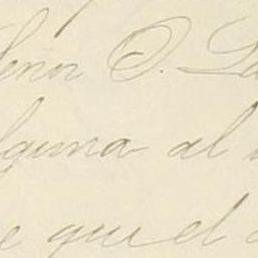 Señor D.
alguna al
e que el